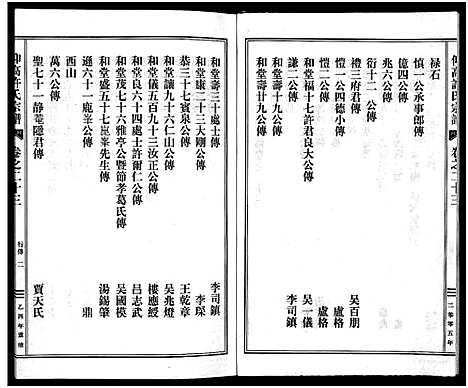 仰高許氏宗譜 卷之二十三
二零零五年
禄石
慎一公承事郎傳
億四公傳
兆六公傳
衍十二公傳
禮三府君傳 吳百朋
愷一公四德小傳 盧格
愷二公傳 盧格
和堂福十七許君良大公傳 吳一儀
謙二公傳 李司鎮
和堂壽廿九公傳
和堂壽三十處士傳 李司鎮
和堂康二十三大剛公傳 李琛
恭三十七賓泉公傳 王乾章
和堂讓九十六仁山公傳 吳兆燈
和堂儀五百九十三汝正公傳 樓應綬
和堂良六十四處士許爾仁公傳 呂志武
和堂茂七十六雅亭公暨節孝葛氏傳 吳國模
和堂盛五十七崑峯先生傳 湯錫肇
遜六十一鹿峯公傳 鼎
西山
萬六公傳
聖七十一靜菴隱君傳 賈天氏
仰高許氏宗譜 卷之二十三
行傳 二
乙酉年重修